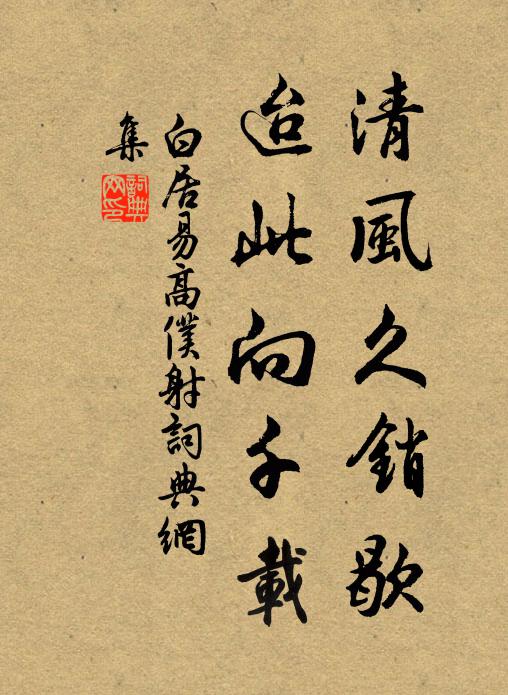 清風久銷歇
迨此向千載
白居易高僕射詞典網
集
詞典網印